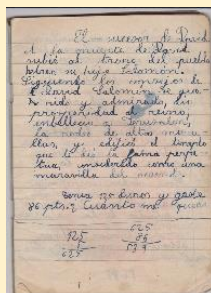 El sucesor de David
A la muerte de David
subió al trono del pueblo
hebreo su hijo Salomón.
Siguiendo los consejos de
David Salomón se
y admirado,
prosperidad el reino,
embelleció a Jerusalén,
la rodeó de altas mura-
llas, y edificó el templo
que le dió la fama perpe-
tua, considerado como una
maravilla del mundo.
Tenía 125 duros y gasté
86 pts. ¿Cuánto me
125
5
625
625